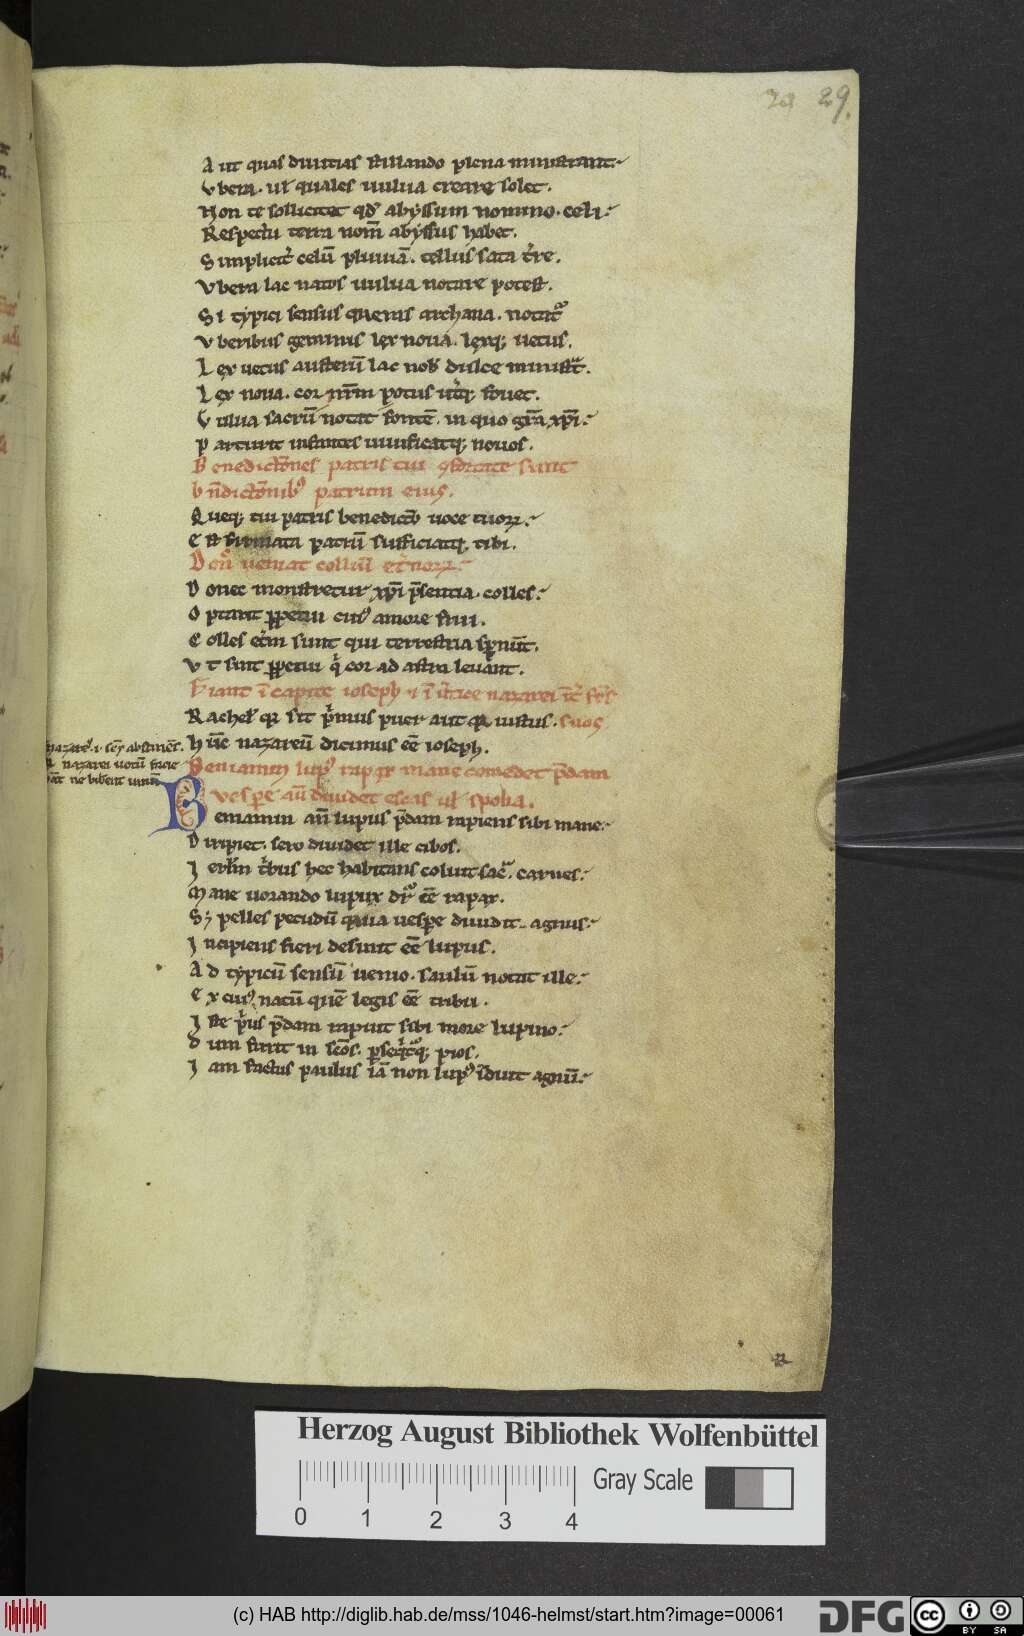 29.
A ut quas diuitias stillando plena ministrant.
V bera. ul quales uulua creare solet.
Non te sollicitet qđ abyssum nomino. celi.
Respectu terra nom̄ abyssus habet.
S impliciť celū pluuiā. tellus sata
V bera lac natos uulua notare potest.
S i typici sensus queris archana.
V beribus geminis lex noua. lexq; uetus.
L ex uetus austerū lac nob dulce
L ex noua. cor nr̄m potus fouet.
V ulua sacrū notat fontē. in quo gr̄a xp̄i.
P arturit infantes uiuificatq; nouos.
B enedictōnes patris tui 9fortate sunt
b n̄dictōnib9 patrum eius.
Q ueq; tui patris benedictō uoce tuor.
E st firmata patrū sufficiatq. tibi.
D on ueniat colliū
D onec monstretur xp̄i p̄sentia. colles.
O ptant ppetui cui9 amore frui.
C olles et̄m sunt qui terrestria spnūt.
V t sint ppetui q cor ad astra leuant.
F iant ī capite ioseph ī nazarei
Rachel qr sit p'mus puer aut qr iustus. suos
H ūc nazareū dicimus eē ioseph.
nazar abstinēs.
nazarei uotū
ne biberent uinū
Beniamin lup9 rapax mane comedet p̄dam
uespe aū diuidet escas ul spolia.
B eniamin aū lupus p̄dam rapiens sibi mane.
D iripiet. sero diuidet ille cibos.
I erlm t'bus hec habitans coluit carnes.
Mane uorando lupux eē rapax.
S; pelles pecudū quia uespe diuidit. agnus.
I ncipiens fieri desinit eē lupus.
A d typicū sensū uenio. saulū notat ille.
E x cui9 natū quē legis eē tribu.
I ste p'us p̄dam rapuit sibi more lupino.
D um furit in scōs. pios.
I am factus paulus iā non lup9 īduit agnū.
Herzog August Bibliothek Wolfenbüttel
Gray Scale
0 1 2 3 4
(c) HAB http://diglib.hab.de/mss/1046-helmst/start.htm?image=00061
DFG
cc BY SA